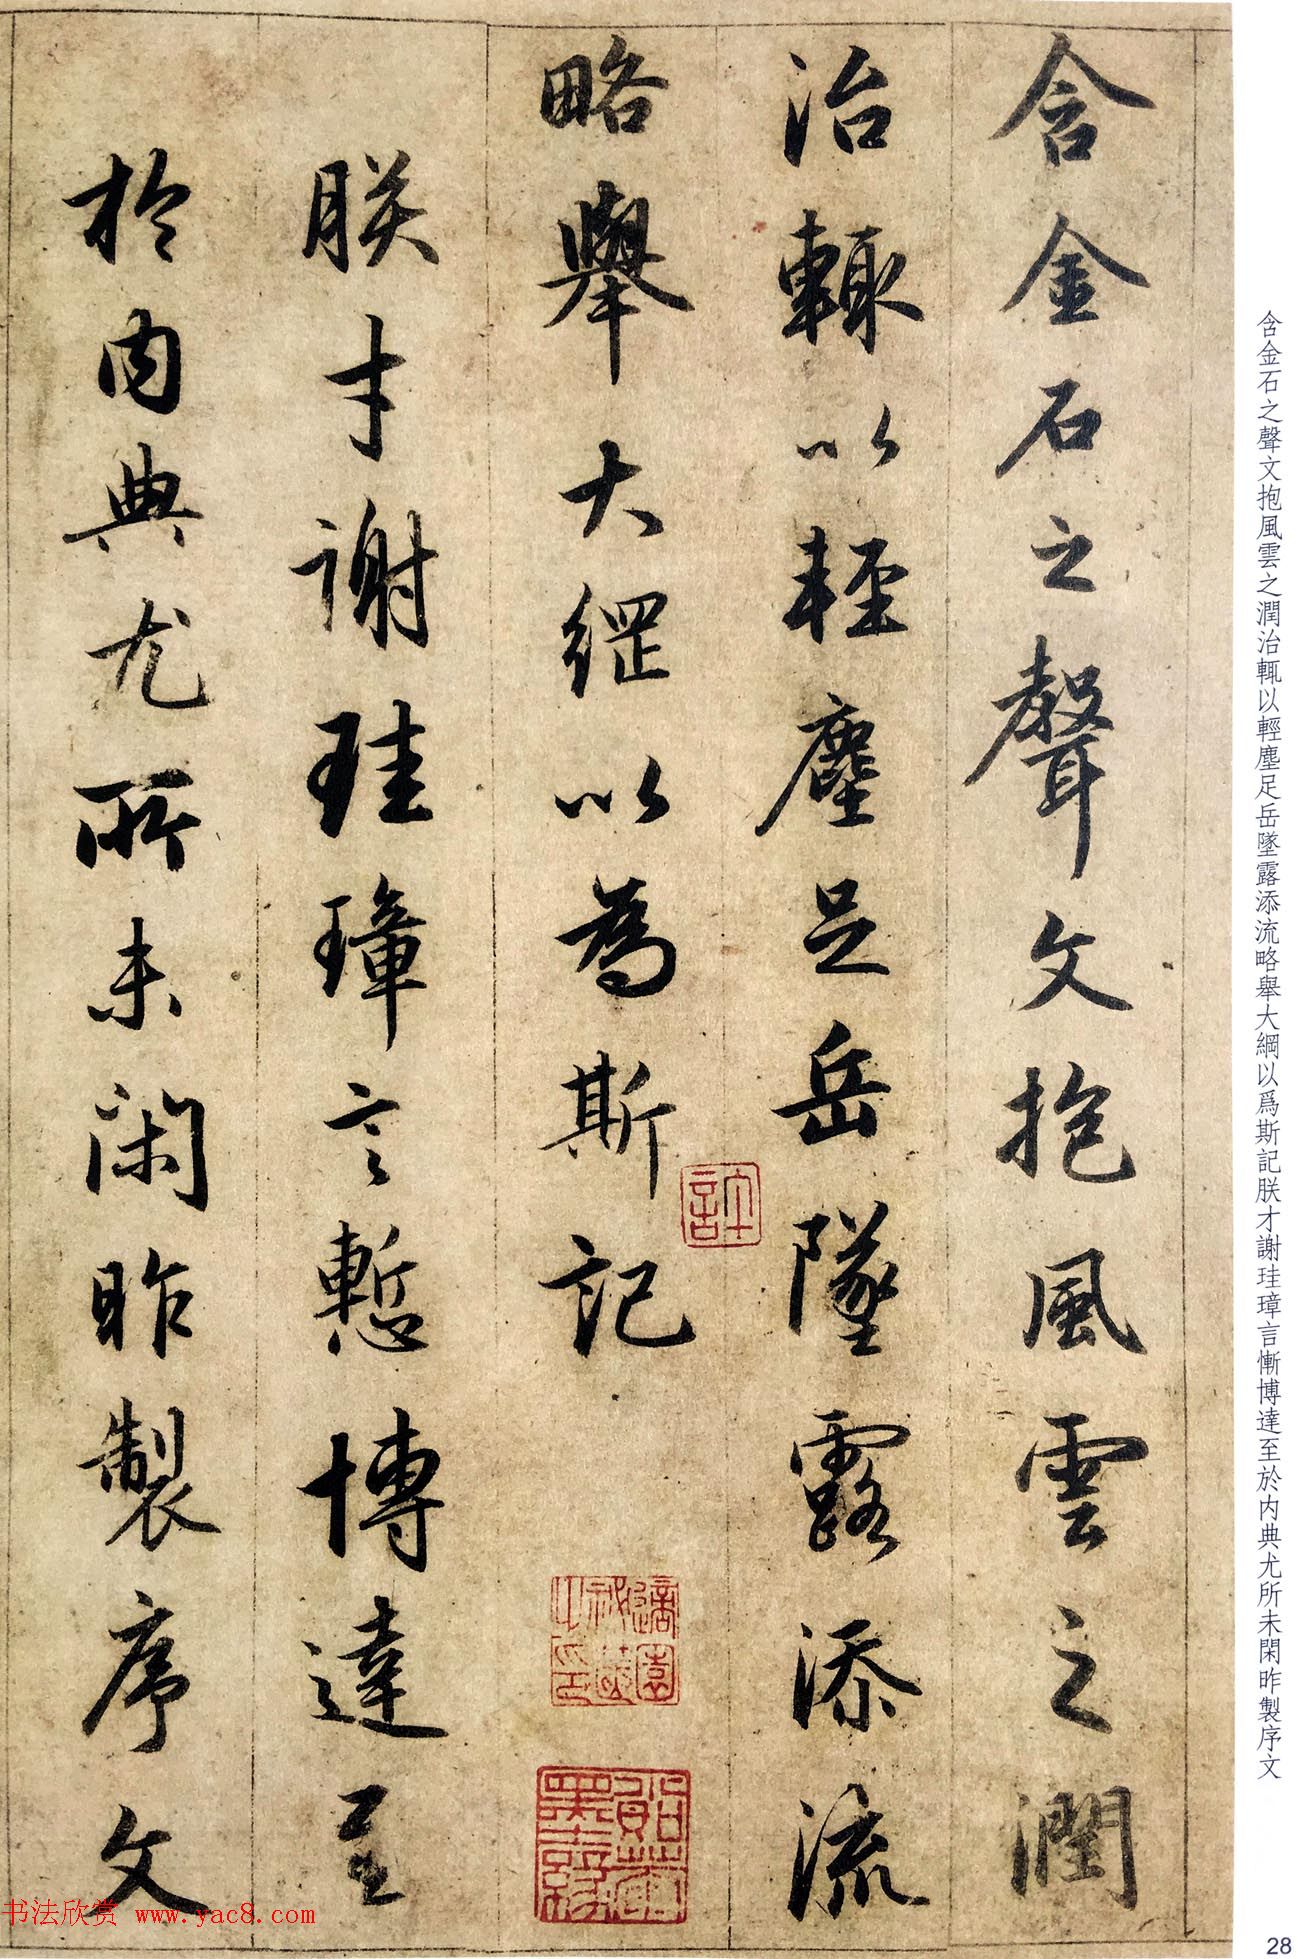 含金石之聲文抱風雲之潤
治輒以輕塵足岳墜露添流
略舉大綱以為斯記
朕才謝珪璋言慙博達至
於內典尤所未閑昨製序文
含金石之聲文抱風雲之潤治輒以輕塵足岳墜露添流略舉大綱以爲斯記朕才謝珪璋言慚博達至於內典尤所未閑昨製序文
书法欣赏 www.yac8.com
28